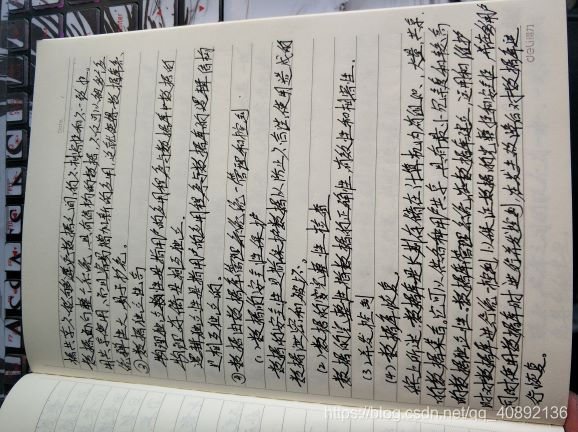 数据面向整个系统,
③ 数据独立性高
物理独立性是指用户的应用程序与数据库中数据的
物理存储是相互独立
逻辑独立性是指用户的应用程序与数据库的逻辑结构
是相互独立的。
④ 数据由数据库管理系统统一管理和控制
(1) 数据的安全性保护
数据的安全性是指保护数据以防止不合法使用造成的
数据泄密和破坏。
(2) 数据的完整性检查
数据的完整性指数据的正确性,有效性和相容性。
(3) 并发控制
(4) 数据库恢复。
综上所述:数据库是长期存储在计算机内有组织、大量、共享
的数据集合。它可以供各种用户共享,具有最小冗余度和较高
的数据独立性。数据库管理系统在数据库建立、运用和维护
时对数据库进行统一控制,以保证数据的完整性和安全性,并在多用户
同时使用数据库时进行并发控制,在发生故障后对数据库进
行恢复。
Date.
deli
https://blog.csdn.net/qq_40892136